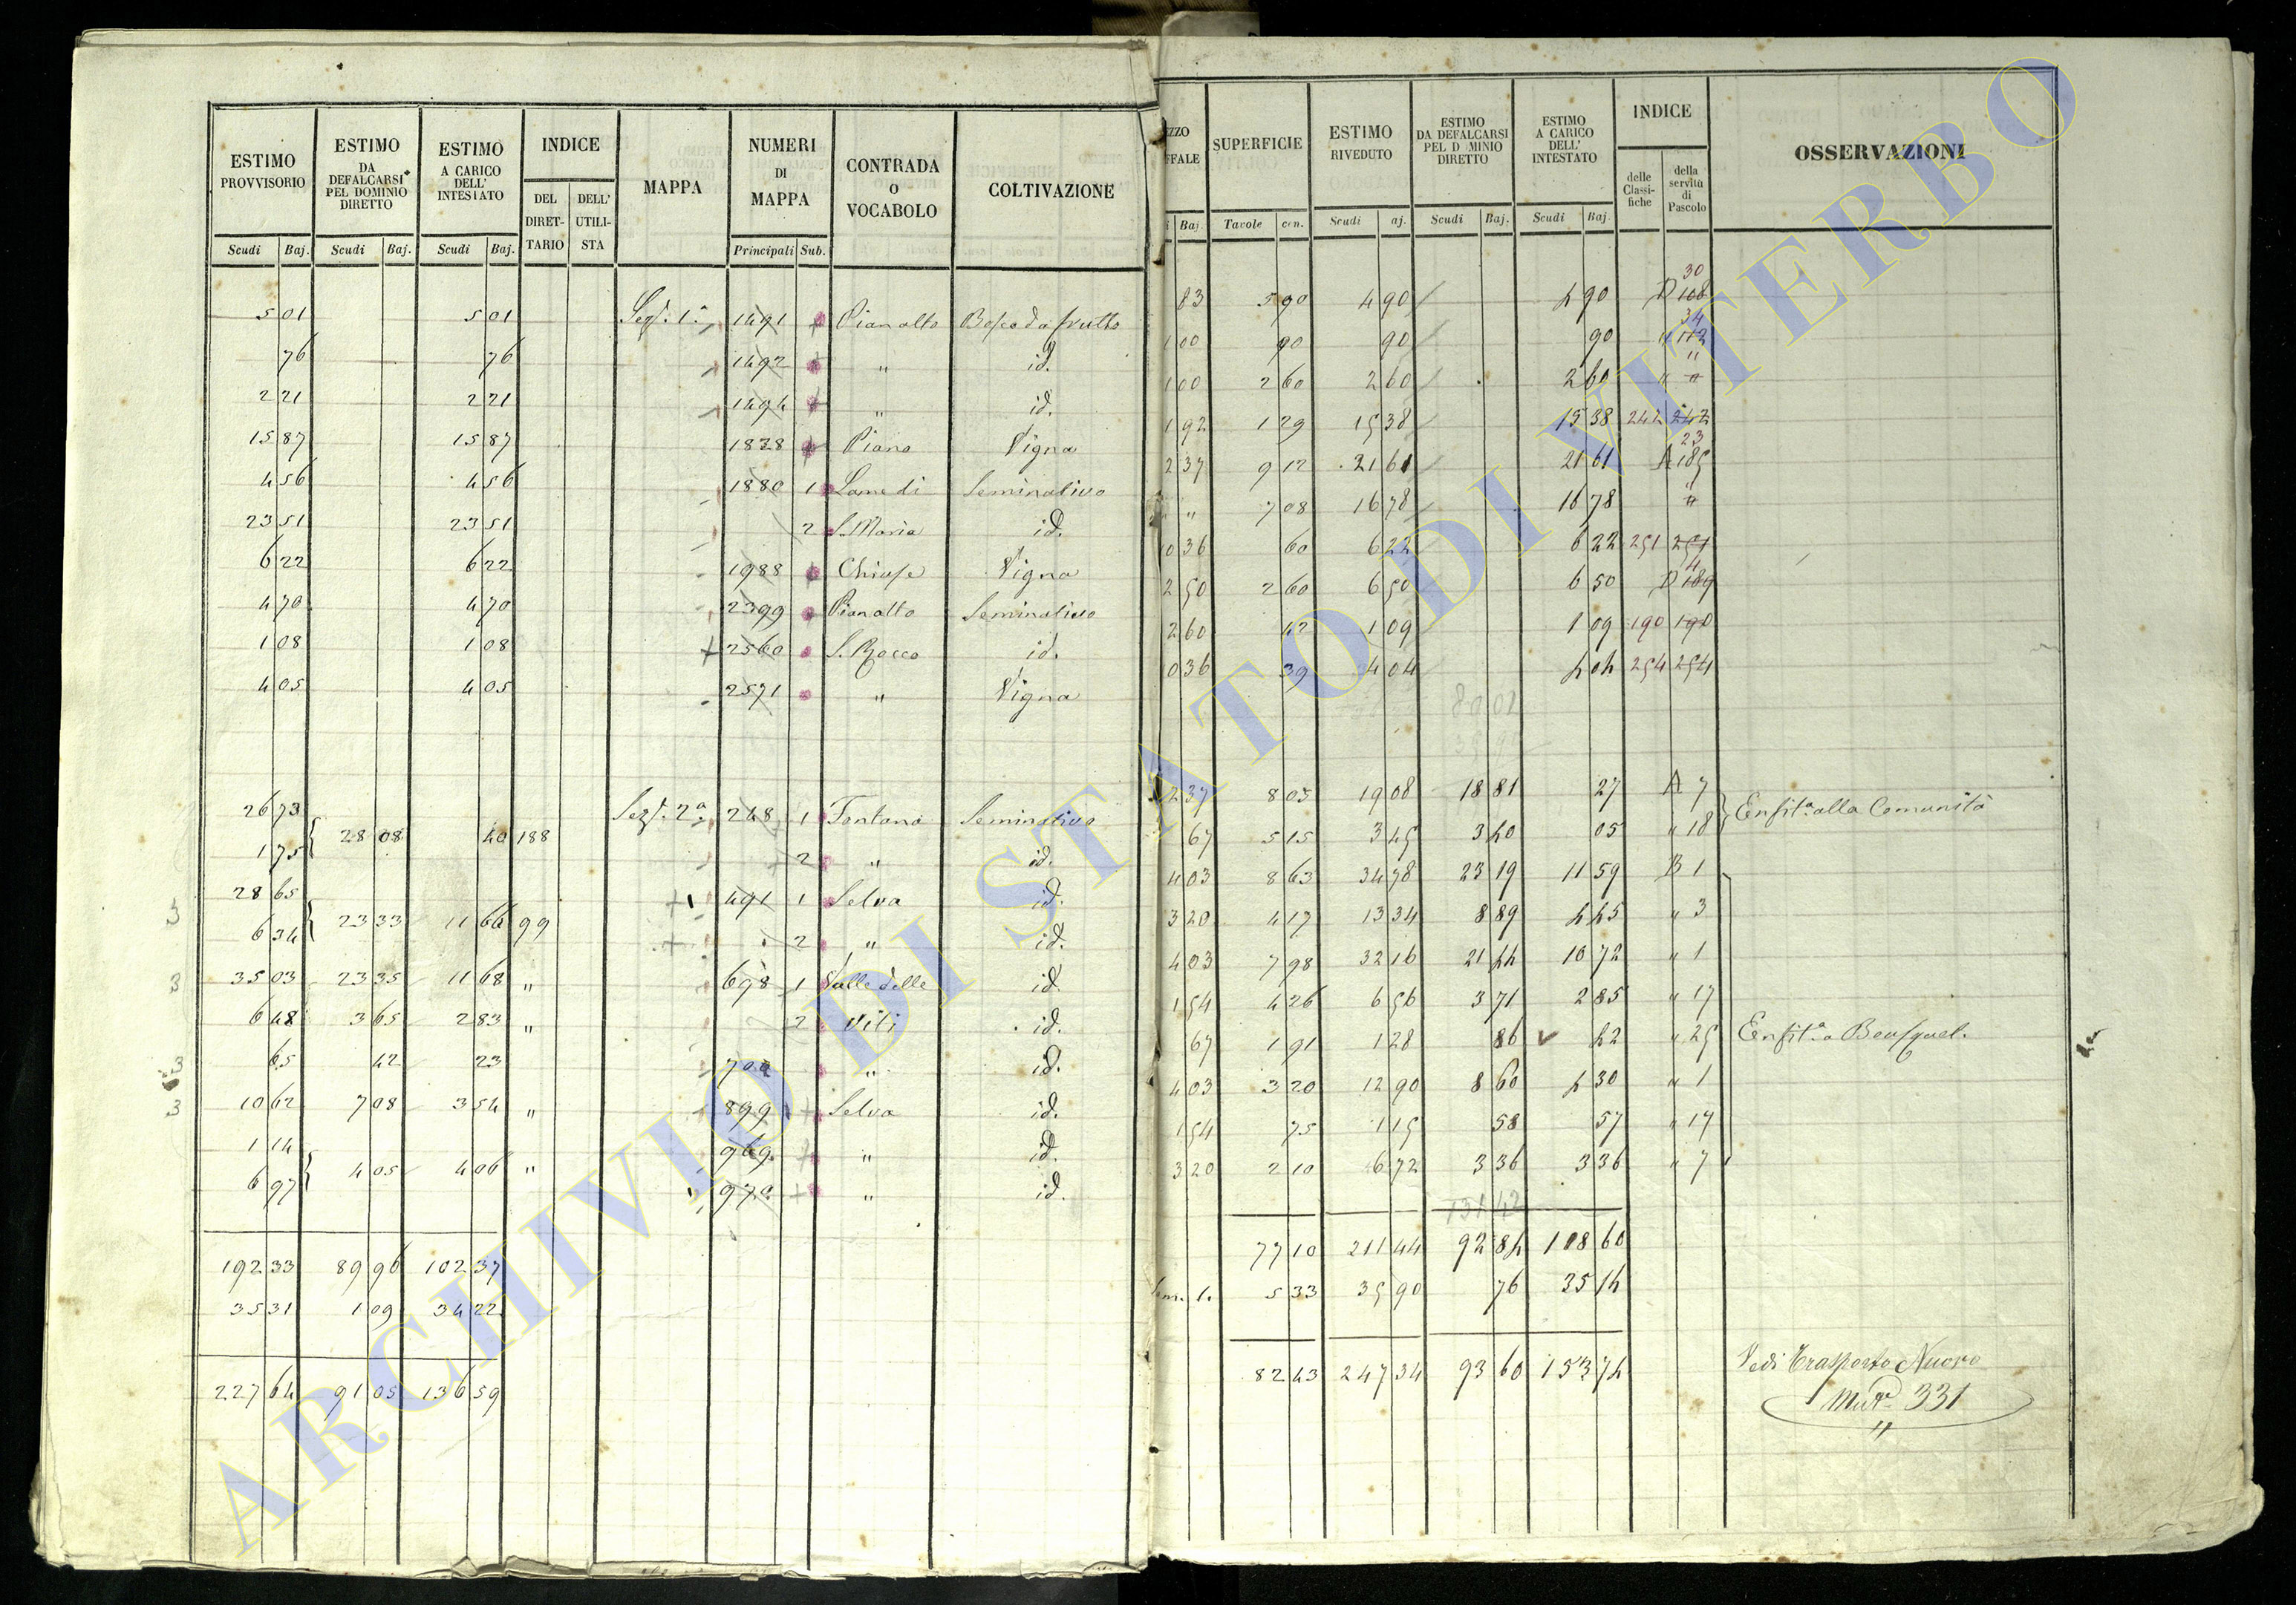 ESTIMO PROVVISORIO | ESTIMO DA DEFALCARSI PEL DOMINIO DIRETTO | ESTIMO A CARICO DELL' INTESTATO | INDICE | MAPPA | NUMERI DI MAPPA | CONTRADA O VOCABOLO | COLTIVAZIONE
DEL DIRETTARIO | DELL' UTILISTA
Scudi | Baj. | Scudi | Baj. | Scudi | Baj. | Principali | Sub.
5 01 | 5 01 | Sez. 1ª | 1491 | Pianalto | Bosco da frutto
76 | 76 | 1492 | " | id.
2 21 | 2 21 | 1494 | " | id.
15 87 | 15 87 | 1838 | Piano | Vigna
4 56 | 4 56 | 1880 | 1 | Lame di | Seminativo
23 51 | 23 51 | 2 | S. Maria | id.
6 22 | 6 22 | 1988 | Chiuse | Vigna
4 70 | 4 70 | 2399 | Pianalto | Seminativo
1 08 | 1 08 | 2560 | S. Rocco | id.
4 05 | 4 05 | 2571 | " | Vigna
26 73 | Sez. 2ª | 248 | 1 | Fontana | Seminativo
28 08 | 40 | 188
1 75 | 2 | " | id.
28 65 | 491 | 1 | Selva | id.
23 33 | 11 66 | 99
6 34 | 2 | " | id.
35 03 | 23 35 | 11 68 | " | 698 | 1 | Valle delle | id.
6 48 | 3 65 | 2 83 | " | 2 | Viti | id.
65 | 42 | 23 | 700 | " | id.
10 62 | 7 08 | 3 54 | " | 899 | Selva | id.
1 14 | 969 | " | id.
4 05 | 4 06 | "
6 97 | 970 | " | id.
192 33 | 89 96 | 102 37
35 31 | 1 09 | 34 22
227 64 | 91 05 | 136 59
EZZO FFALE | SUPERFICIE | ESTIMO RIVEDUTO | ESTIMO DA DEFALCARSI PEL D MINIO DIRETTO | ESTIMO A CARICO DELL' INTESTATO | INDICE | OSSERVAZIONI
delle Classifiche | della servitù di Pascolo
i | Baj. | Tavole | cen. | Scudi | aj. | Scudi | Baj. | Scudi | Baj.
83 | 5 90 | 4 90 | 4 90 | D 108 30
1 00 | 90 | 90 | 90 | " 112 34
1 00 | 2 60 | 2 60 | 2 60 | " "
1 92 | 1 29 | 15 38 | 15 38 | 242 | 242
2 37 | 9 12 | 21 61 | 21 61 | A 185 23
" | 7 08 | 16 78 | 16 78 | "
10 36 | 60 | 6 22 | 6 22 | 251 | 251
2 50 | 2 60 | 6 50 | 6 50 | D 189 4
2 60 | 42 | 1 09 | 1 09 | 190 | 190
10 36 | 39 | 4 04 | 4 04 | 254 | 254
80 02
2 37 | 8 05 | 19 08 | 18 81 | 27 | A 7 | Enfit.ª alla Comunità
67 | 5 15 | 3 45 | 3 40 | 05 | " 18
4 03 | 8 63 | 34 78 | 23 19 | 11 59 | B 1
3 20 | 4 17 | 13 34 | 8 89 | 4 45 | " 3
4 03 | 7 98 | 32 16 | 21 44 | 10 72 | " 1
1 54 | 4 26 | 6 56 | 3 71 | 2 85 | " 17
67 | 1 91 | 1 28 | 86 | 42 | " 25 | Enfit.ª a
4 03 | 3 20 | 12 90 | 8 60 | 4 30 | " 1
1 54 | 75 | 1 15 | 58 | 57 | " 17
3 20 | 2 10 | 6 72 | 3 36 | 3 36 | " 7
131 42
77 10 | 211 44 | 92 84 | 118 60
5 33 | 35 90 | 76 | 35 14
82 43 | 247 34 | 93 60 | 153 74
Vedi Trasporto Nuovo
331
ARCHIVIO DI STATO DI VITERBO